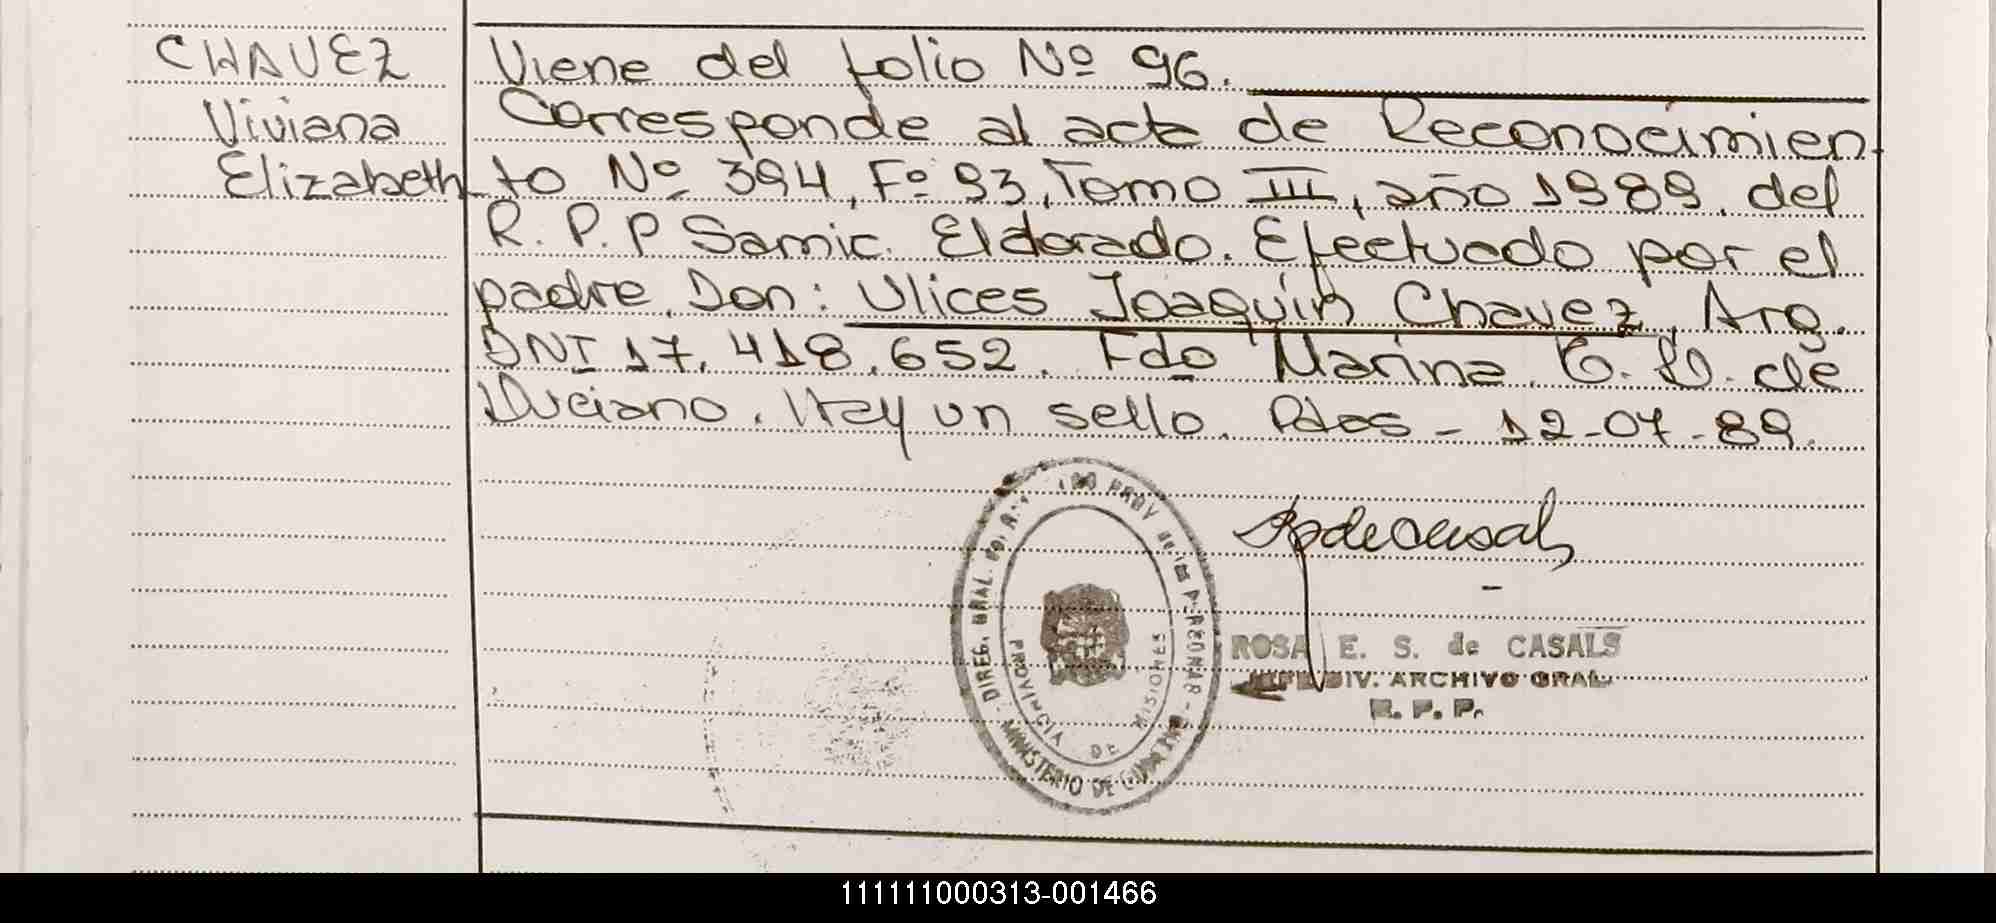 CHAVEZ
Viviana
Elizabeth
Viene del folio Nº 96.
Corresponde al acta de Reconocimien-
to Nº 394, Fº 93, Tomo III, año 1989. del
R. P. P Samic. Eldorado. Efectuado por el
padre, Don: Ulices Joaquin Chavez, Arg.
DNI 17.418.652. Fdo Marina. E. D. de
Luciano. Hay un sello. Pdas - 12-07-89.
DIREG. GRAL. PROV de las PERSONAS
MINISTERIO DE GOBIERNO
PROVINCIA DE MISIONES
ROSA E. S. de CASALS
DIV. ARCHIVO GRAL.
R. P. P.
111111000313-001466